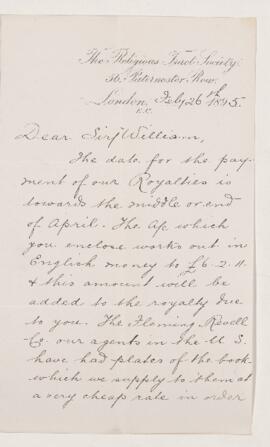 The Religious Tract Society.
56, Paternoster Row,
London, Feby 26th 1895.
E.C.
Dear Sir William,
The date for the pay-
ment of our Royalties is
towards the middle or end
of April. The a/c which
you enclose works out in
English money to £6-2-11
& this amount will be
added to the royalty due
to you. The Fleming Revell
Co. our agents in the U.S.
have had plates of the book
which we supply to them at
a very cheap rate in order